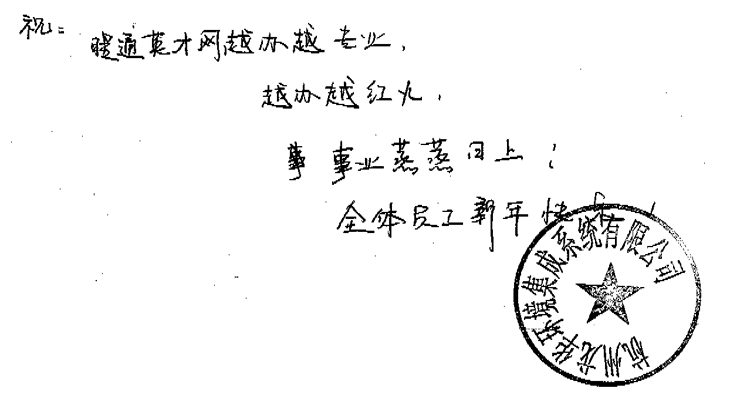 祝：暖通英才网越办越专业，
越办越红火，
事 事业蒸蒸日上；
全体员工新年快乐！
杭州龙华环境集成系统有限公司